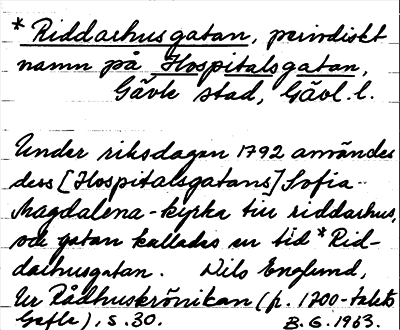 * Riddarhusgatan, periodiskt
namn på Hospitalsgatan,
Gävle stad, Gävl. l.
Under riksdagen 1792 användes
dess [Hospitalsgatans] Sofia-
Magdalena-kyrka till riddarhus,
och gatan kallades en tid *Rid-
darhusgatan. Nils Englund,
Ur Rådhuskrönikan (fr. 1700-talets
Gefle), s. 30. B. G. 1963.